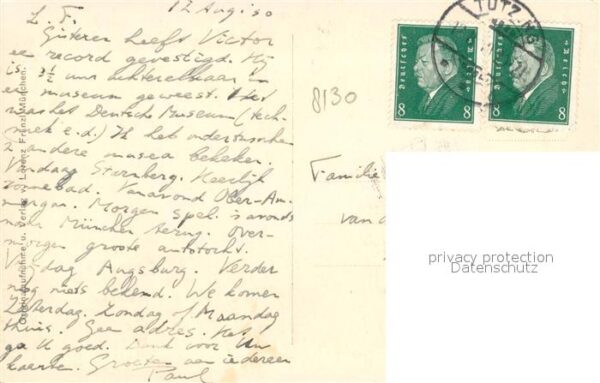 12 Aug '30
L. F.
Gisteren heeft Victor
een record gevestigd. Hij
is 3½ uur achterelkaar in
een museum geweest. Het
was het Deutsche Museum (tech-
niek e.d.) Ik heb ondertusschen
2 andere musea bekeken.
Vandaag Starnberg. Heerlijk
zonnebad. Vanavond Ober-Am-
mergau. Morgen spel. 's avonds
naar München terug. Over-
morgen groote autotocht.
Vrijdag Augsburg. Verder
nog niets bekend. We komen
Zaterdag, Zondag of Maandag
thuis. Geen adres. Het
ga U goed. Dank voor Uw
kaarten. Groeten aan iedereen
Paul
Originalaufnahme u. Verlag Lorenz Fränzl München.
8130
TUTZING
Deutsches Reich
8 8
Deutsches Reich
8 8
Familie
van
privacy protection
Datenschutz